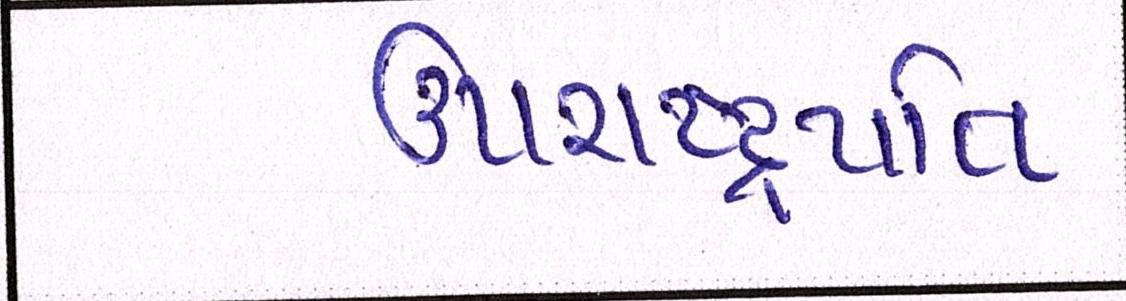 ઉપરાષ્ટ્રપતિ